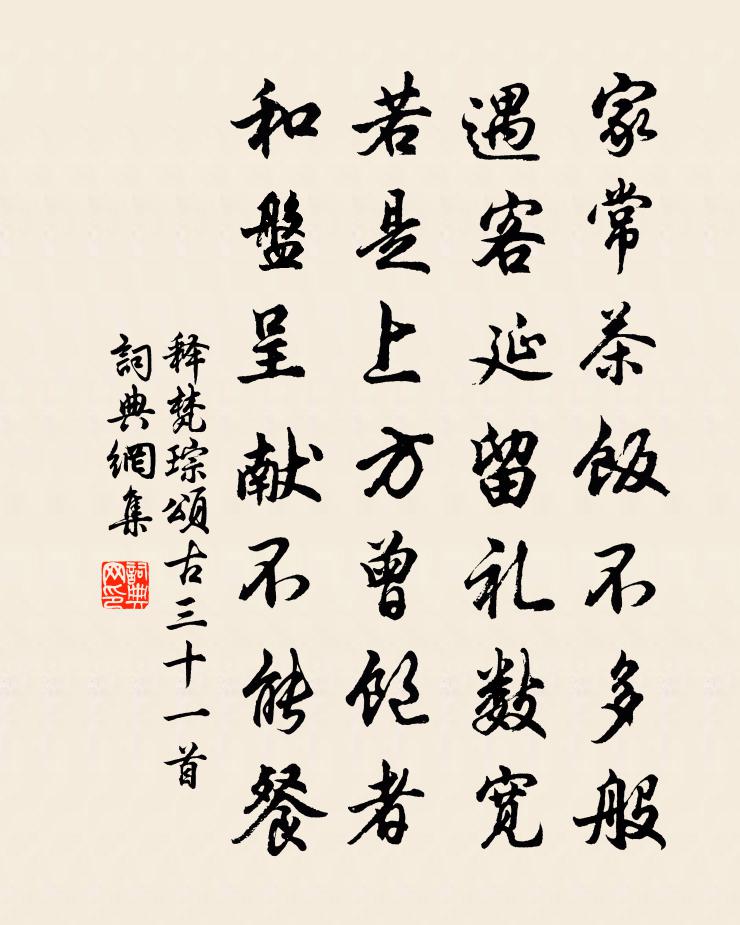 家常茶飯不多般
遇客延留礼數寬
若是上方曾飽者
和盤呈献不能餐
释梵琮頌古三十一首
詞典網集
詞典网印